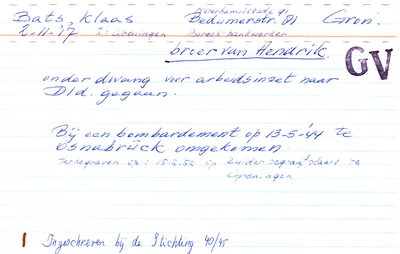 Bats, Klaas Bedumerstr. 91 Gron.
2-11-'17 Groningen Beroep: bankwerker
broer van Hendrik.
GV
onder dwang voor arbeidsinzet naar
Dld. gegaan.
Bij een bombardement op 13-5-'44 te
Osnabrück omgekomen.
Herbegraven op: 15-2-52 op Zuider begraafplaats te
Groningen
Ingeschreven bij de Stichting 40/45